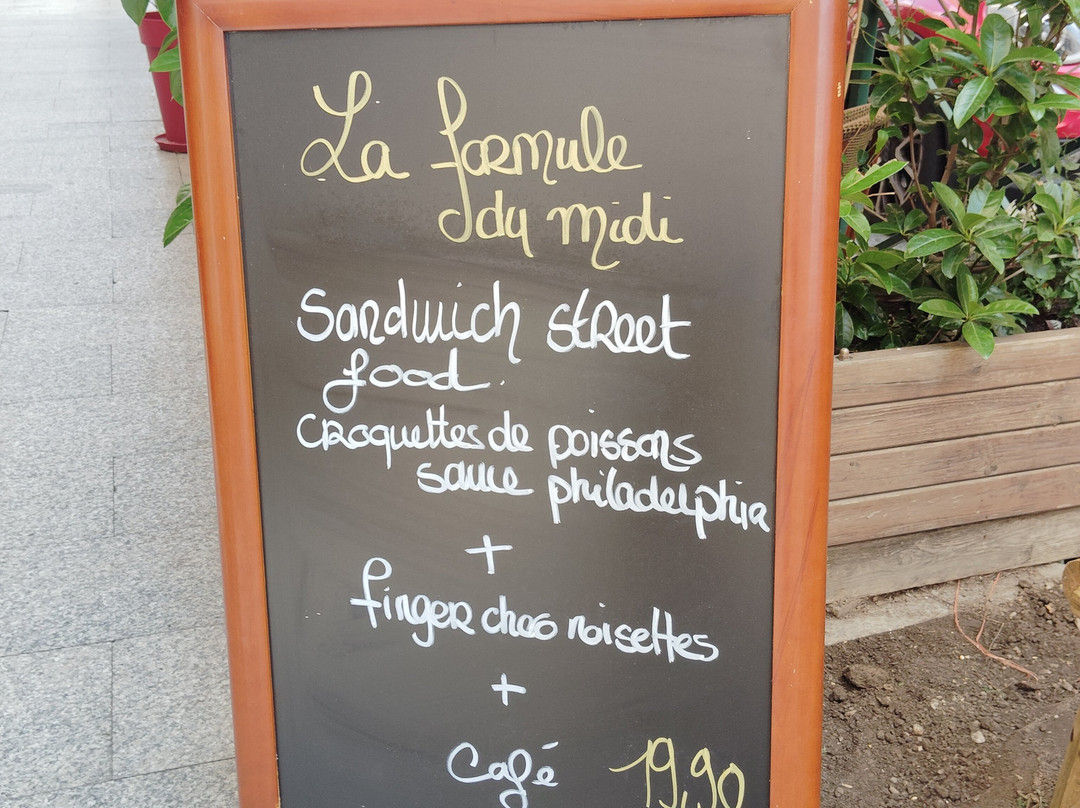 La formule
du midi
Sandwich street
food.
croquettes de poissons
sauce philadelphia
+
finger choco noisettes
+
Café 19,90